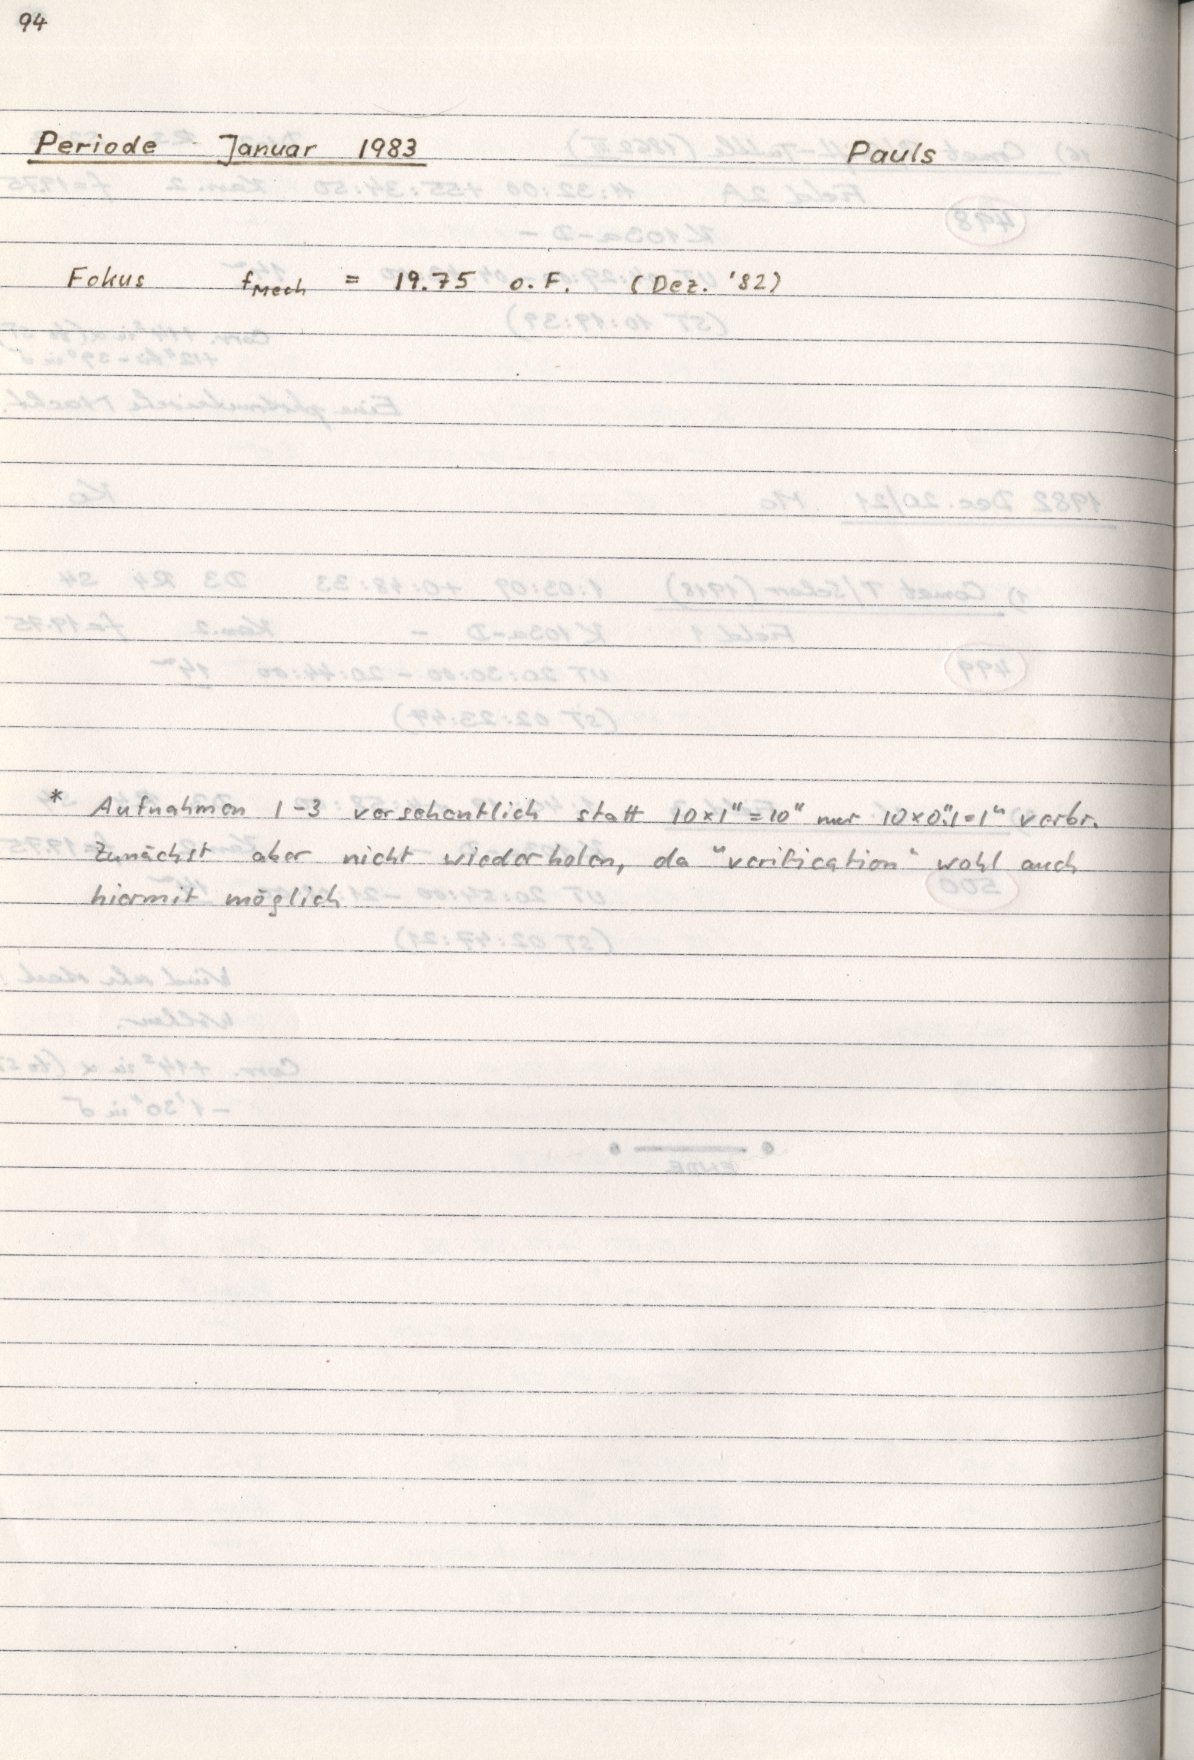 94
Periode Januar 1983 Pauls
Fokus fMech = 19.75 o.F. (Dez. '82)
* Aufnahmen 1-3 versehentlich statt 10x1"=10" nur 10x0".1=1" verbr.
Zunächst aber nicht wiederholen, da "verification" wohl auch
hiermit möglich